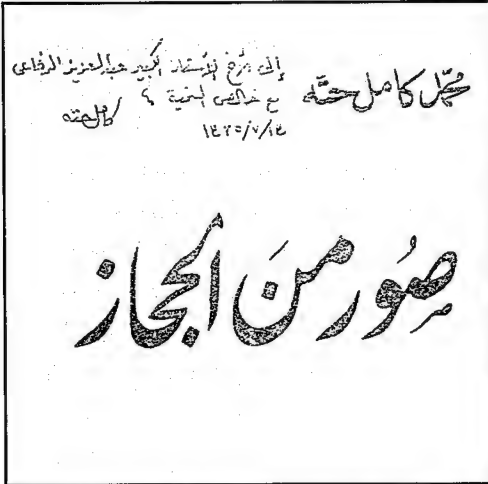 محمّد كامل حتّه
إلى الأخ الأستاذ الكبير عبد العزيز الرفاعي
مع خالص التحية
كامل حته
صُور منَ الحجاز